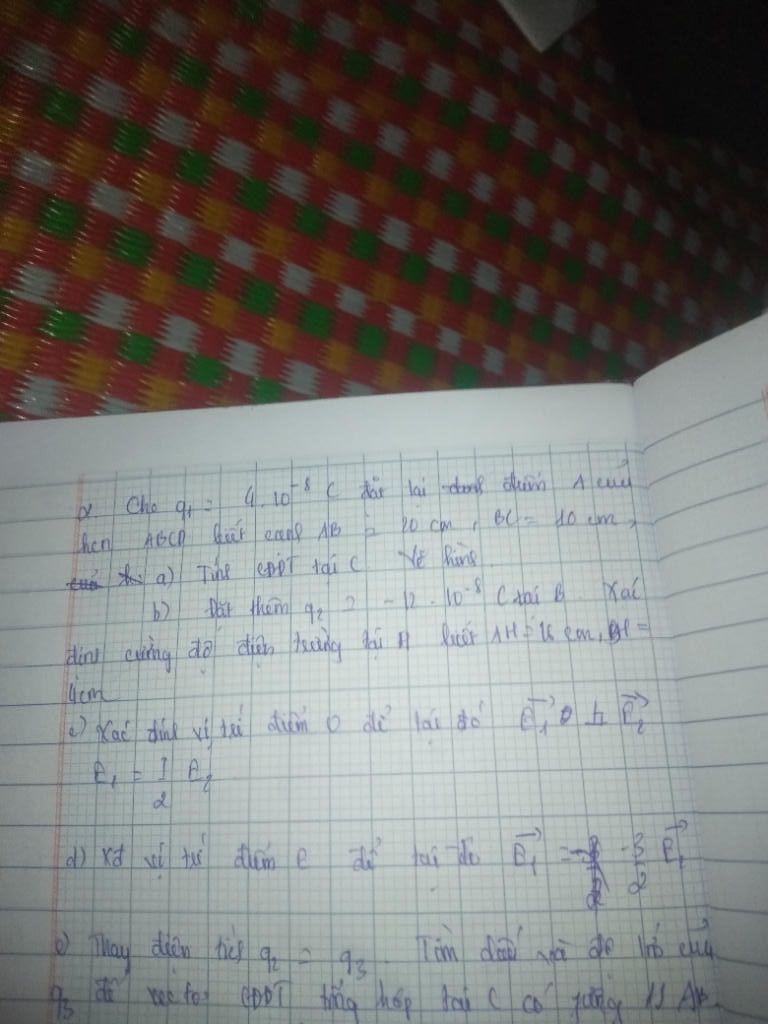 Cho q1 = 4.10⁻⁸ C đặt tại điểm A của
hcn ABCD biết cạnh AB = 20 cm, BC = 10 cm,
a) Tính CĐĐT tại C. Vẽ hình.
b) Đặt thêm q2 = -12.10⁻⁸ C tại B. Xác
định cường độ điện trường tại H biết AH = 16 cm, BH =
4cm
c) Xác định vị trí điểm O để tại đó E⃗1 ⊥ E⃗2
E1 = 1/2 E2
d) Xđ vị trí điểm E để tại đó E⃗1 = -3/2
e) Thay điện tích q2 = q3. Tìm dấu và độ lớn của
q3 để vectơ CĐĐT tổng hợp tại C có AB